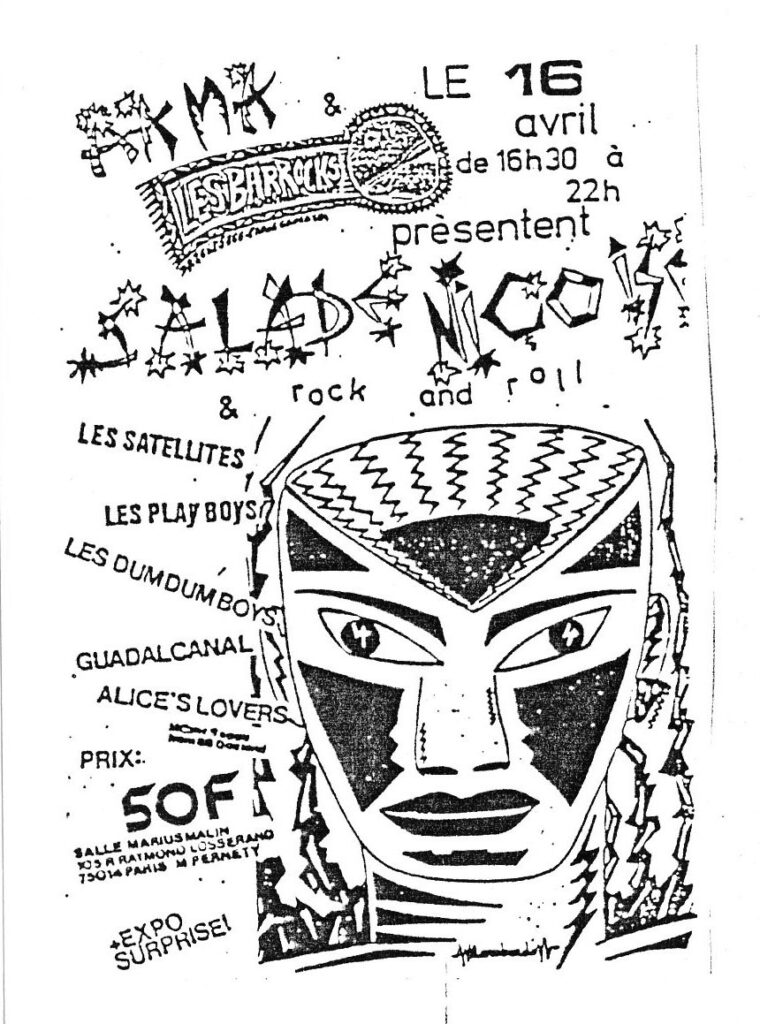 &
LE 16
avril
de 16h30 à
22h
LES BARROCKS
prèsentent
SALADE NIÇOISE
& rock and roll
LES SATELLITES
LES PLAY BOYS
LES DUM DUM BOYS
GUADALCANAL
ALICE'S LOVERS
PRIX:
50F
SALLE MARIUS MALIN
105 R RAYMOND LOSSERAND
75014 PARIS M PERNETY
+EXPO
SURPRISE!